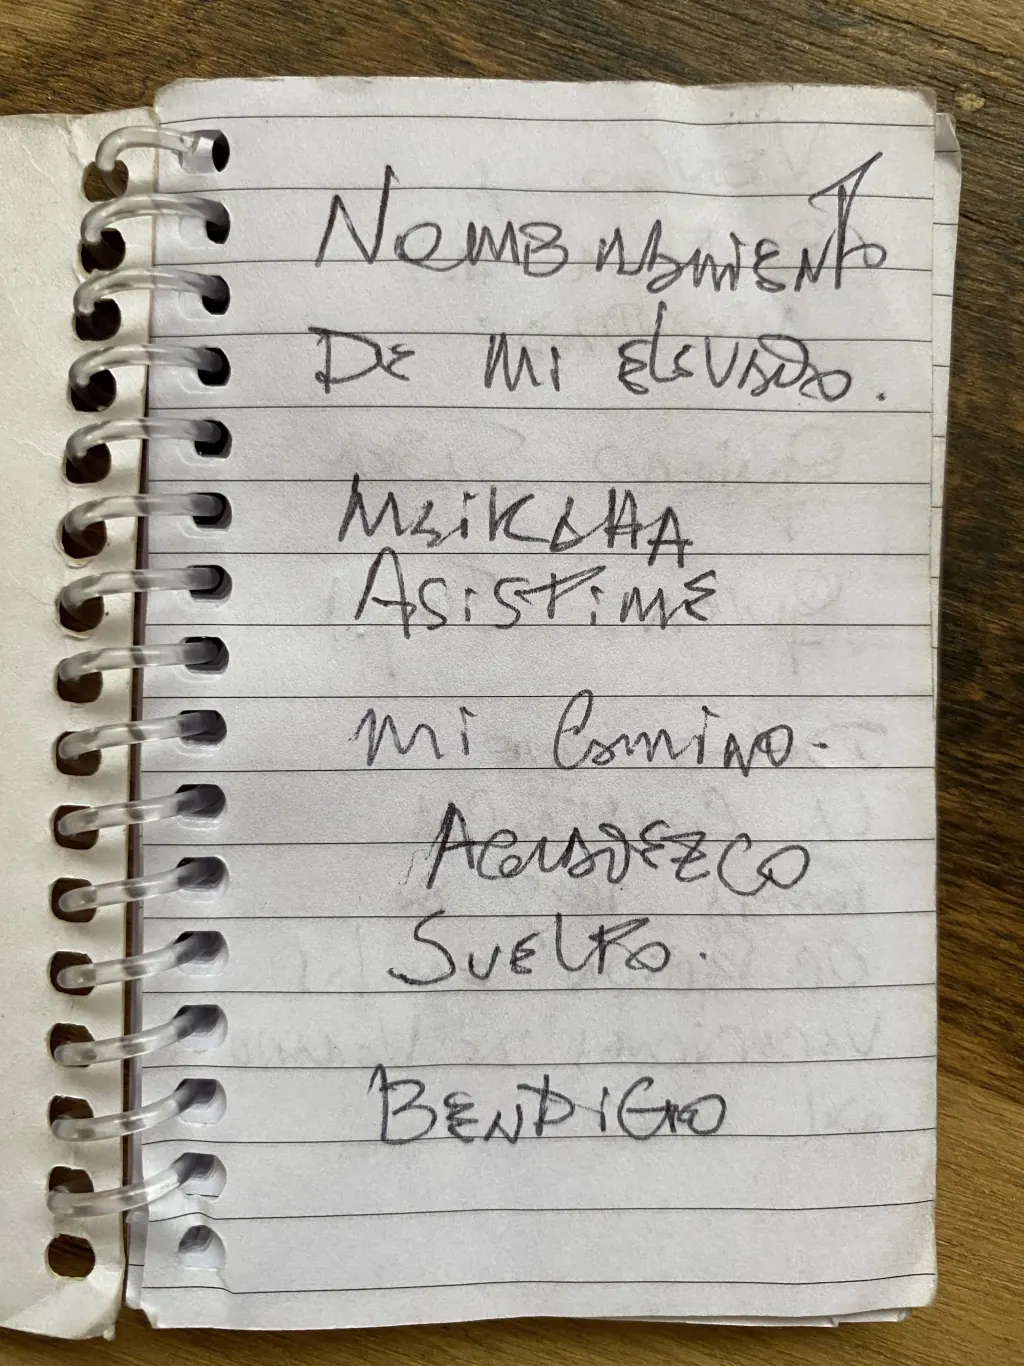 Nombramiento
De mi elevado.
Maikaha
Asistime
mi Camino.
Agradezco
Suelto.
BENDIGO